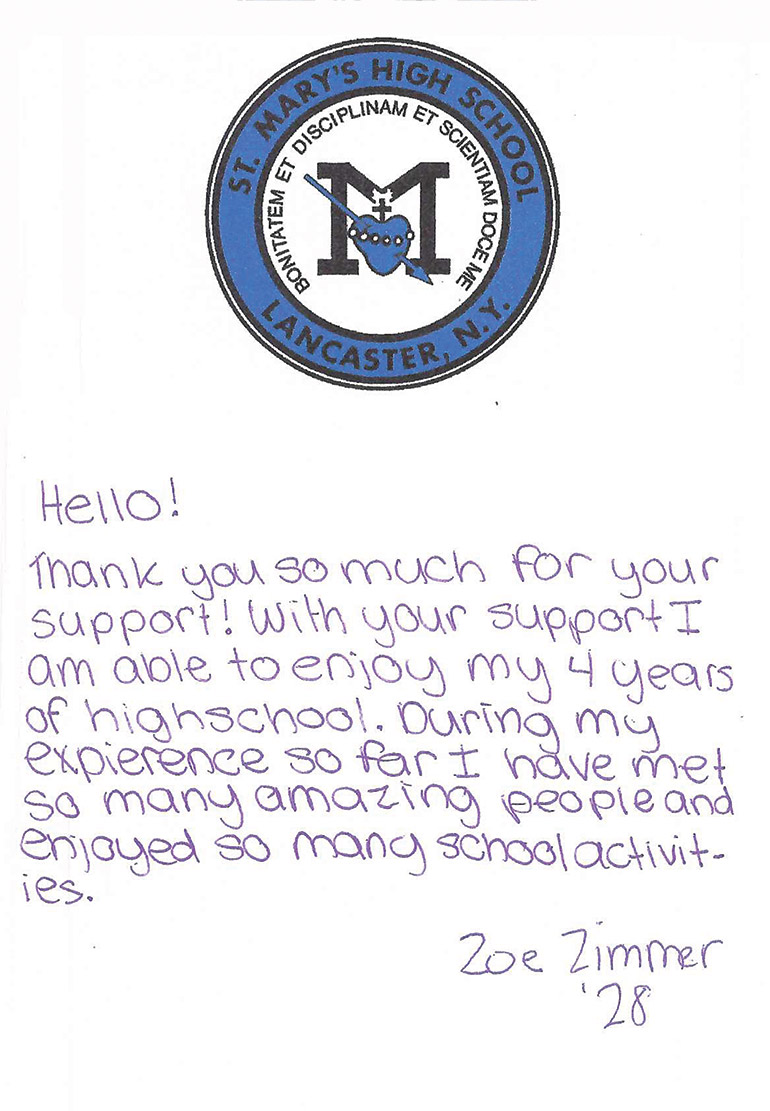 ST. MARY'S HIGH SCHOOL
BONITATEM ET DISCIPLINAM ET SCIENTIAM DOCE ME
M
LANCASTER, N.Y.
Hello!
Thank you so much for your
support! With your support I
am able to enjoy my 4 years
of highschool. During my
expierence so far I have met
so many amazing people and
enjoyed so many school activit-
ies.
Zoe Zimmer
'28